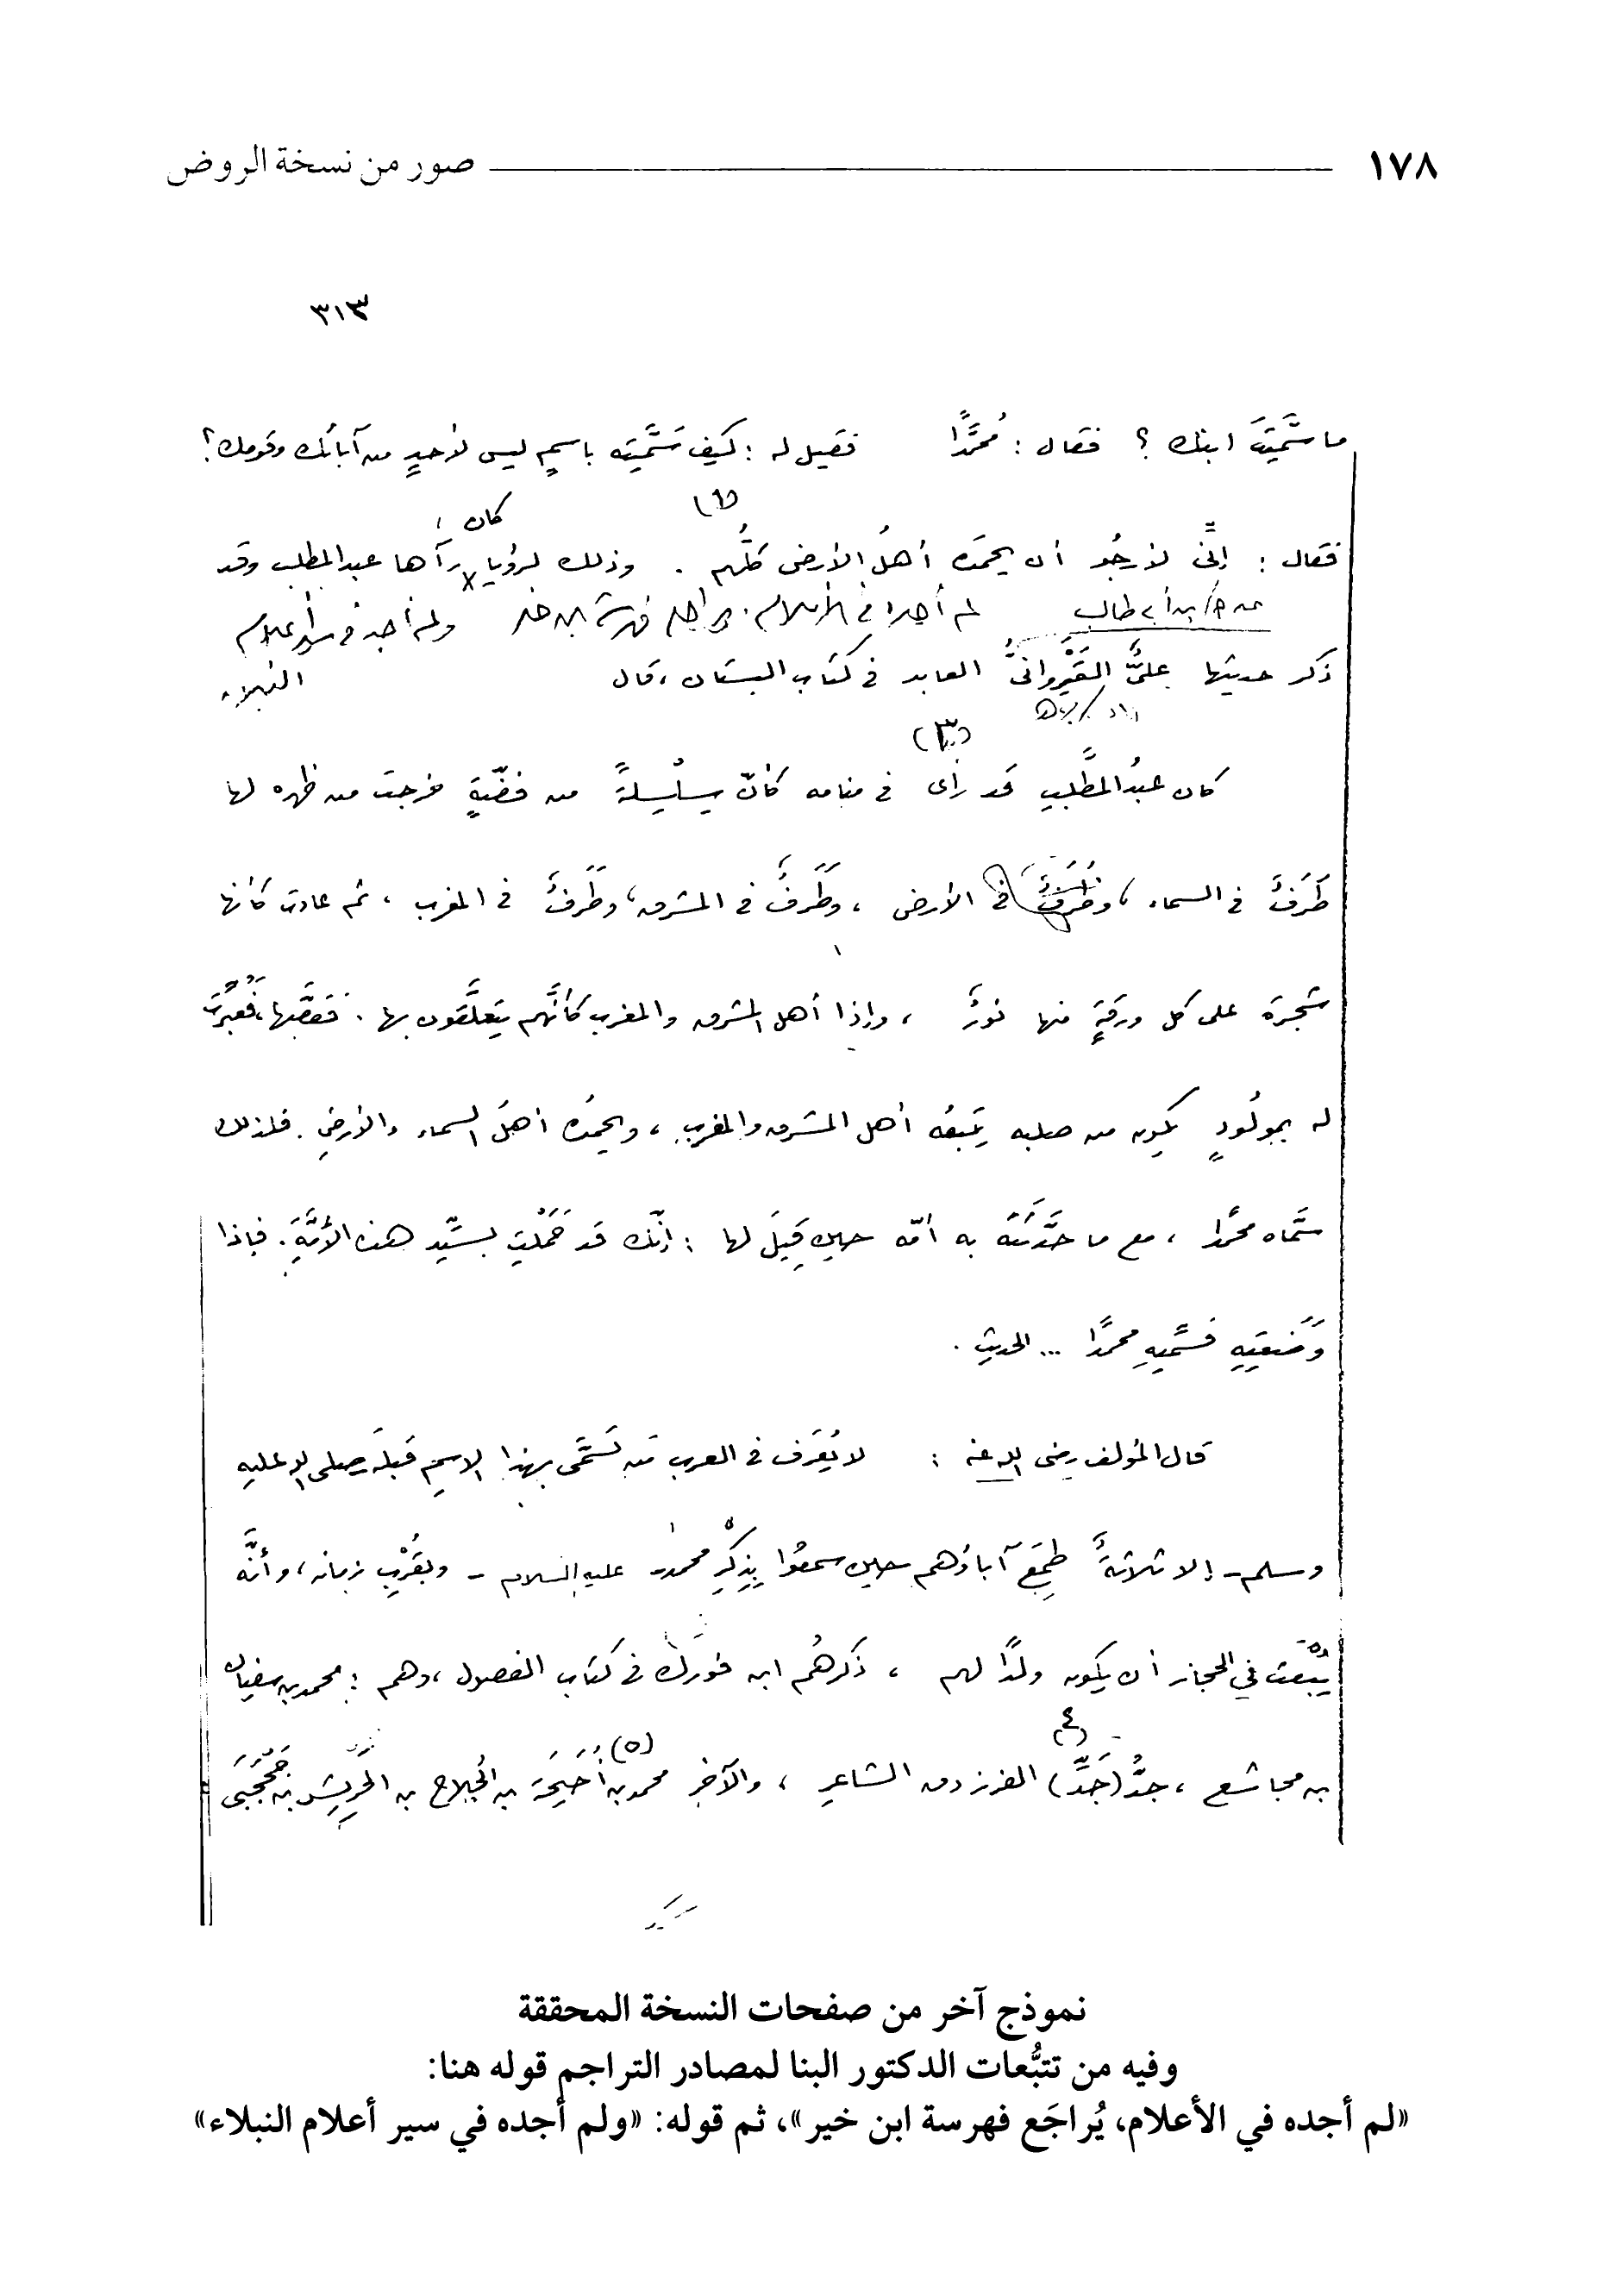 ١٧٨ صور من نسخة الروض
٣١٣
ما سَمَّيْتَ ابنك ؟ فقال : مُحَمَّدًا فقيل له : كيف سَمَّيته باسمٍ ليس لأحدٍ من آبائك وقومك ؟
كان
فقال : إنِّي لأرجُو أن يحمَده أهلُ الأرضِ كلُّهم . وذلك لرؤيا رآها عبد المطلب وقد
لم أجده في الأعلام . يراجع فهرسة ابن خير ولم أجده في سير أعلام
ذكر حديثها عليٌّ القَيْرَوانيُّ العابد في كتاب البستان ، قال النبلاء
(٣)
كان عبدُ المطَّلبِ قد رأى في منامه كأنّ سِلْسِلةً من فضّةٍ خرجت من ظهره لها
طَرَفٌ في السماء ، وطَرَفٌ في الأرض ، وطَرَفٌ في المشرق ، وطَرَفٌ في المغرب ، ثم عادت كأنها
شجرة على كل ورقةٍ منها نورٌ ، وإذا أهل المشرق والمغرب كأنَّهم يتعلَّقون بها . فقصَّها ، فعُبِّرَتْ
له بمولُودٍ يكون من صلبه يتبعُه أهل المشرق والمغرب ، ويحمدُه أهلُ السماء والأرضِ . فلذلك
سمَّاه محمَّدا ، مع ما حدَّثَتْه به أمّه حين قِيلَ لها : إنّك قد حَمَلْتِ بسيّد هذه الأمَّةِ . فإذا
وَضَعتِيهِ فسَمِّيهِ محمدًا ... الحديث .
قال المؤلف رضى الله عنه : لا يُعْرَف في العرب مَن تَسَمَّى بهذا الاسمِ قبلَه صلى الله عليه
وسلم - إلا ثلاثةٌ طَمِعَ آباؤهم حين سمعُوا بِذِكْرِ محمد - عليه السلام - وبقُرْبِ زمانه ، وأنَّه
يُبْعَث في الحجاز أن يكون ولدًا لهم ، ذكرهُم ابن فُورَك في كتاب الفصول ، وهم : محمد بن سفيان
(٤) (٥)
بن مجاشع ، جدُّ (جَدِّ) الفرزدق الشاعرِ ، والآخر محمد بن أُحَيْحَة بن الجُلاح بن الحَرِيش بن جَحْجَبَى
نموذج آخر من صفحات النسخة المحققة
وفيه من تتبُّعات الدكتور البنا لمصادر التراجم قوله هنا:
«لم أجده في الأعلام، يُراجَع فهرسة ابن خير»، ثم قوله: «ولم أجده في سير أعلام النبلاء»